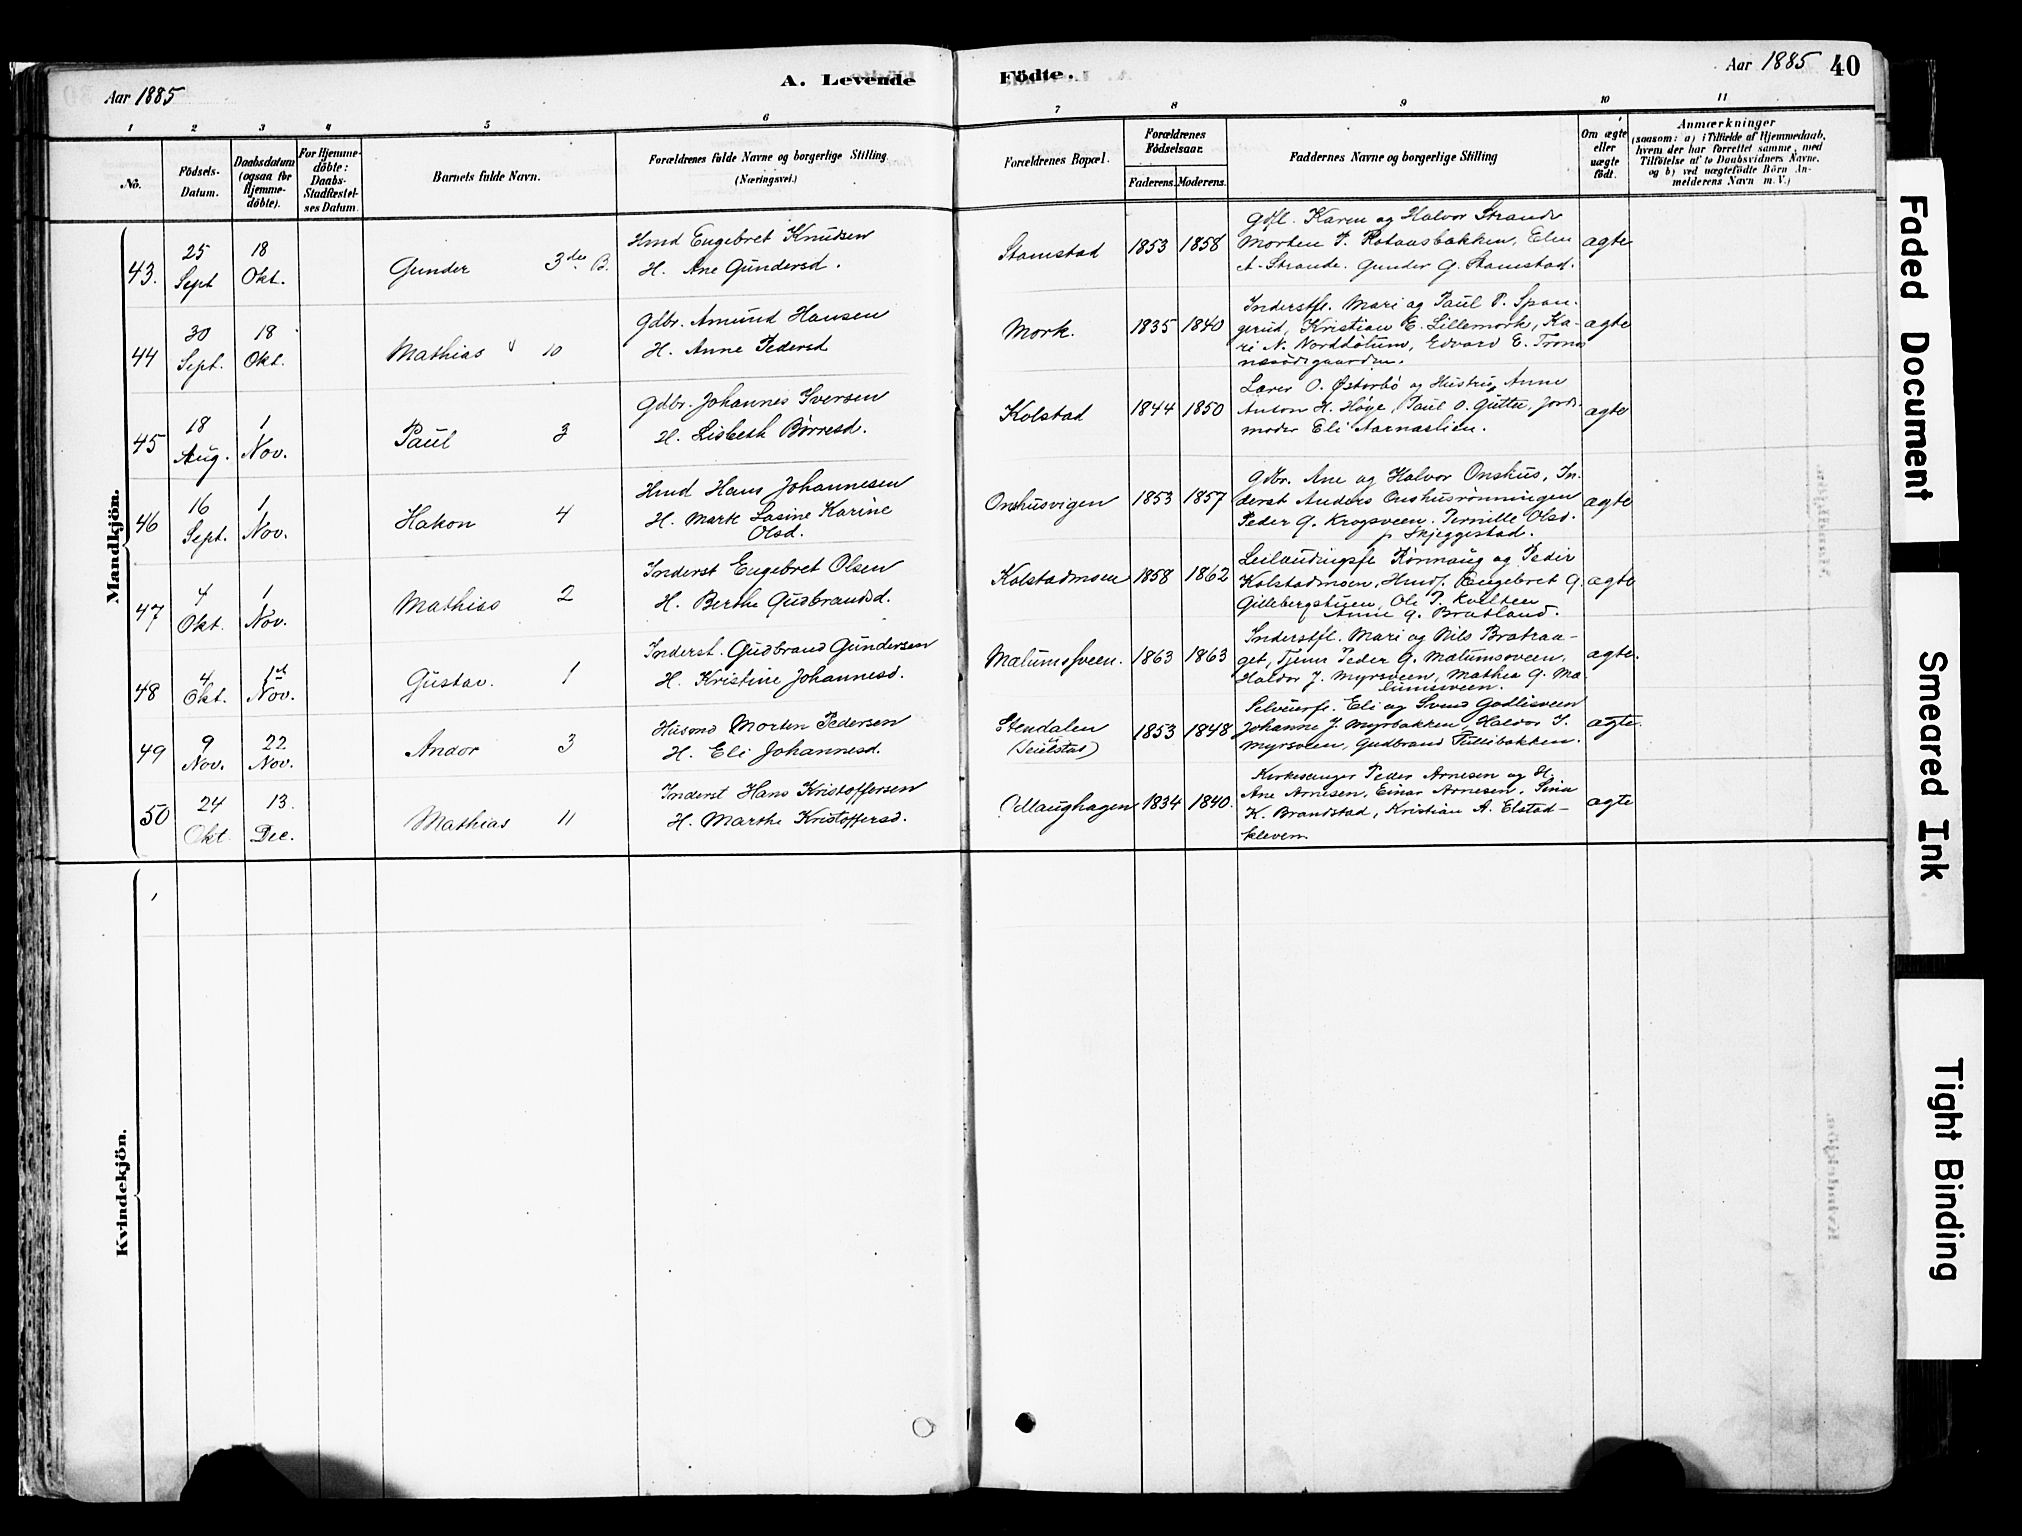 Aar 1885
A. Levende
Födte.
Aar 1885 40
1 2 3 4 5 6 7 8 9 10 11
No.
Födsels-
Datum.
Daabsdatum
(ogsaa for
Hjemme-
döbte).
For Hjemme-
döbte:
Daabs-
Stadfæstel-
ses Datum.
Barnets fulde Navn.
Forældrenes fulde Navne og borgerlige Stilling
(Næringsvei.)
Forældrenes Bopæl.
Forældrenes
Födselsaar.
Faderens. Moderens.
Faddernes Navne og borgerlige Stilling
Om ægte
eller
uægte
födt.
Anmærkninger
(saasom: a) i Tilfælde af Hjemmedaab,
hvem der har forrettet samme, med
Tilföielse af to Daabsvidners Navne,
og b) ved uægtefödte Börn An-
melderens Navn m. V.)
Mandkjön.
43. 25 Sept 18 Okt. Gunder 3die B.
Hmd Engebret Knudsen
H. Ane Gundersd.
Stamstad 1853 1858
Gdfl. Karen og Halvor Strande
Morten P. Rotaasbakken, Elen
A. Strande. Gunder G. Stamstad.
ægte
44 30 Sept. 18 Okt. Mathias 10
Gdbr. Amund Hansen
H. Anne Pedersd
Mork. 1835 1840
Inderstfl. Mari og Paul P. Span-
gerud, Kristian E. Lillemork, Ka-
ri N. Nordholum, Edvard E. Trones
nesödegaarden.
ægte
45 18 Aug. 1 Nov. Paul 3
Gdbr. Johannes Iversen
H. Lisbeth Börresd.
Kolstad 1844 1850
Lærer O. Østerbö og Hustru Anne
Anton H. Höye, Paul O. Gutter, Jord-
moder Eli Aarnæslien.
ægte
46 16 Sept. 1 Nov. Hakon 4
Hmd Hans Johannesen
H. Mark Lasine Karine
Olsd.
Onshusvigen 1853 1857
Gdbr. Ane og Halvor Onshus, In-
derst Anders Onshusrønningen
Peder G. Krogsveen. Pernille Olsd.
p Skjeggestad.
ægte
47 4 Okt. 1 Nov. Mathias 2
Inderst Engebret Olsen
H. Berthe Gudbrandsd.
Kolstadmoen 1858 1862
Leilændingsfl Rönnaug og Peder
Kolstadmoen, Hmdf. Engebret G
Gillebergstuen, Ole P. Kvelteen
Anne G. Bratland.
ægte
48 4 Okt. 1st Nov. Gustav. 1
Inderst. Gudbrand Gundersen
H. Kristine Johannesd.
Mælumsveen. 1863 1863
Inderstfl. Mari og Nils Bratraa-
get, Tjener Peder G. Mælumsveen,
Haldor J. Myrsveen, Mathea G. Mæ-
lumsveen.
ægte.
49 9 Nov. 22 Nov. Andor 3
Husmd Morten Pedersen
H. Eli Johannesd.
Stendalen
1853 1848
Selveierfl. Eli og Svend Godlisveen
Johanne J. Myrbakken, Haldor J.
Myrsveen, Gudbrand Tullibakken.
ægte.
50 24 Okt 13. Dec. Mathias 11
Inderst Hans Kristoffersen
H. Marthe Kristoffersd.
Odlaughagen 1834 1840.
Kirkesanger Peder Arnesen og H.
Ane Arnesen, Einar Arnesen, Sina
K. Brandstad, Kristian A. Elstad-
kleven
ægte
Kvindekjön.
Faded Document
Smeared Ink
Tight Binding